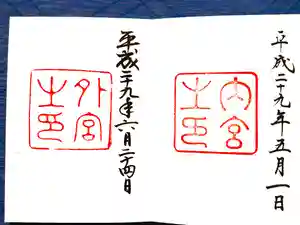 平成二十九年五月一日
内宮之印
平成二十九年六月二十四日
外宮之印